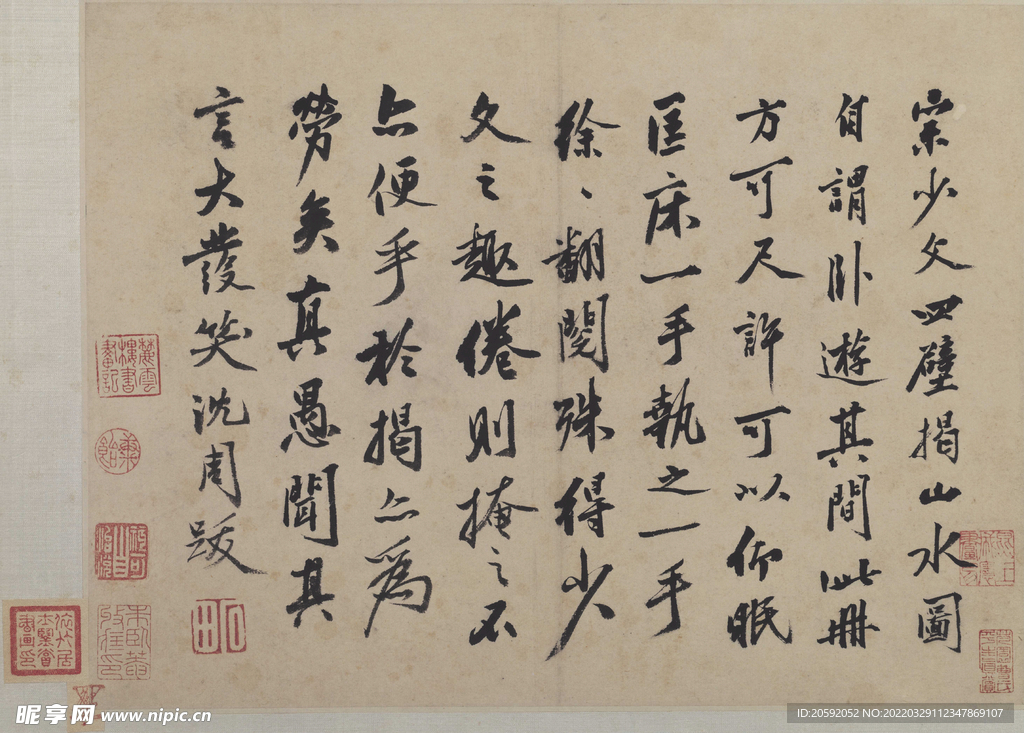 宗少文四壁揭山水圖
自謂卧遊其間此冊
方可尺許可以仰眠
匡床一手執之一手
徐〻翻閱殊得少
文之趣倦則掩之不
亦便乎於揭亦為
勞矣真愚聞其
言大發笑沈周跋
麓雲樓書畫記
昵享网 www.nipic.cn
ID:20592052 NO:20220329112347869107